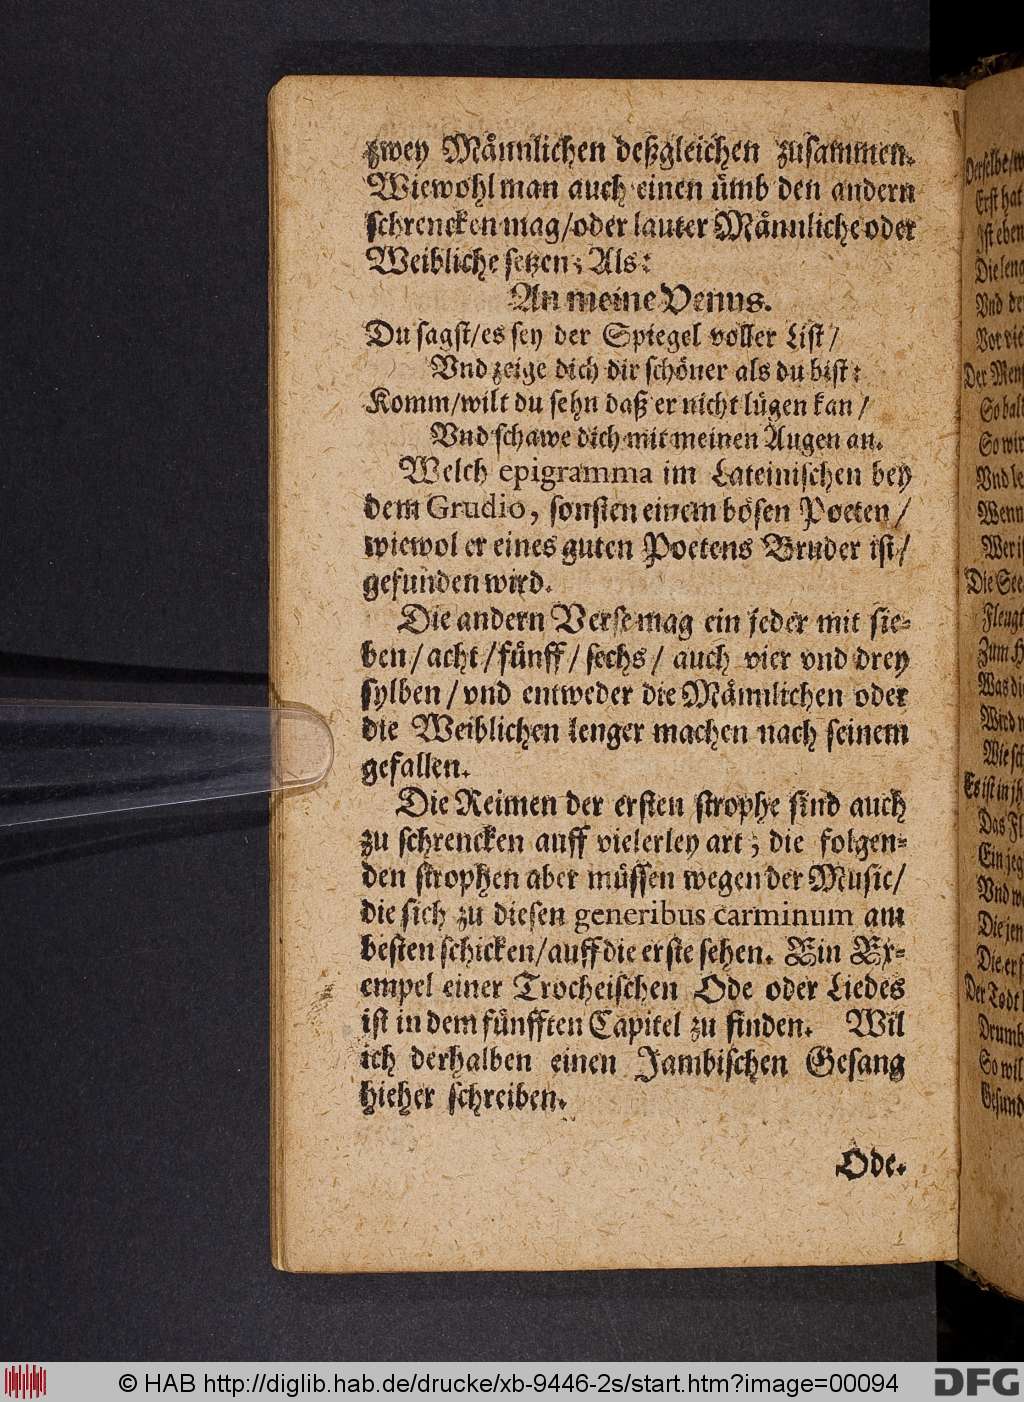 zwey Männlichen deßgleichen zusammen.
Wiewohl man auch einen ümb den andern
schrencken mag/oder lauter Männliche oder
Weibliche setzen; Als:
An meine Venus.
Du sagst/es sey der Spiegel voller List/
Vnd zeige dich dir schöner als du bist:
Komm/wilt du sehn daß er nicht lügen kan/
Vnd schawe dich mit meinen Augen an.
Welch epigramma im Lateinischen bey
dem Grudio, sonsten einem bösen Poeten/
wiewol er eines guten Poetens Bruder ist/
gefunden wird.
Die andern Verse mag ein jeder mit sie-
ben/acht/fünff/sechs/ auch vier vnd drey
sylben/vnd entweder die Männlichen oder
die Weiblichen lenger machen nach seinem
gefallen.
Die Reimen der ersten strophe sind auch
zu schrencken auff vielerley art; die folgen-
den strophen aber müssen wegen der Music/
die sich zu diesen generibus carminum am
besten schicken/auff die erste sehen. Ein Ex-
empel einer Trocheischen Ode oder Liedes
ist in dem fünfften Capitel zu finden. Wil
ich derhalben einen Jambischen Gesang
hieher schreiben.
Ode.
Erst hat
Ist eben
Vnd
So
So wir
Wenn
Zum
Was
Das
Die
So wil
© HAB http://diglib.hab.de/drucke/xb-9446-2s/start.htm?image=00094
DFG